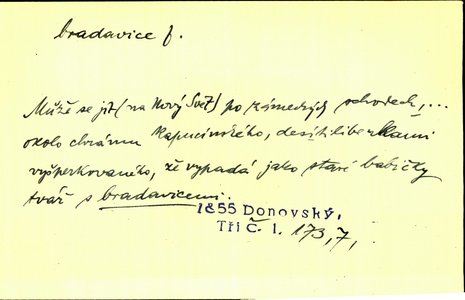 bradavice f.
Může se jít (na Nový Svět) po zámeckých schodech, ...
okolo chrámu kapucínského, desítiliberkami
vyšperkovaného, že vypadá jako staré babičky
tvář s bradavicemi.
1855 Donovský,
Tři č. 1. 173,7,